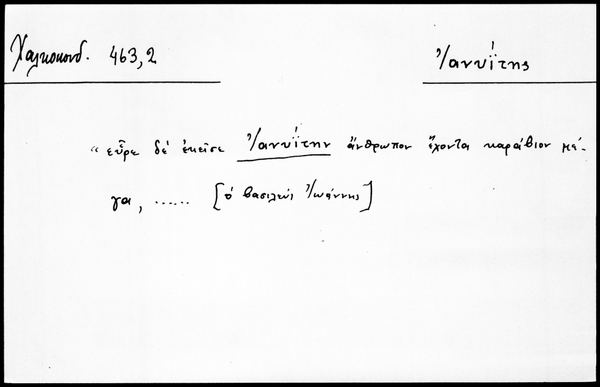 Χαλκοκονδ. 463,2
Ἰανυΐτης
“ εὗρε δέ ἐκεῖσε Ἰανυΐτην ἄνθρωπον ἔχοντα καράβιον μέ-
γα, ...... [ὁ βασιλεύς Ἰωάννης]